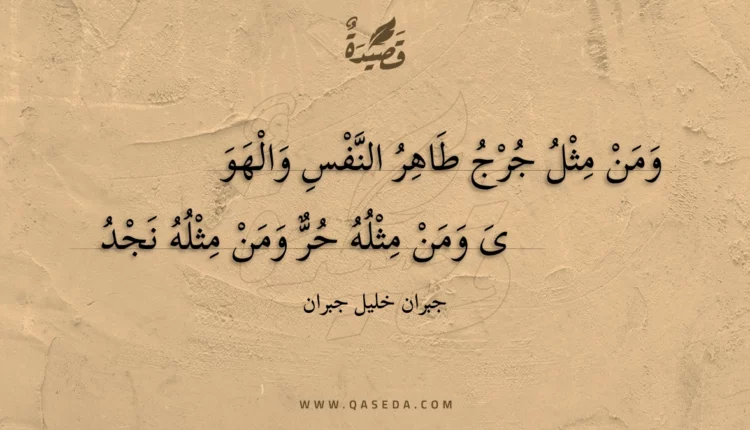 قَصِيْدَةٌ
وَمَنْ مِثْلُ جُرْجُ طَاهِرُ النَّفْسِ وَالْهَوَ
ىَ وَمَنْ مِثْلُهُ حُرٌّ وَمَنْ مِثْلُهُ نَجْدُ
جبران خليل جبران
WWW.QASEDA.COM